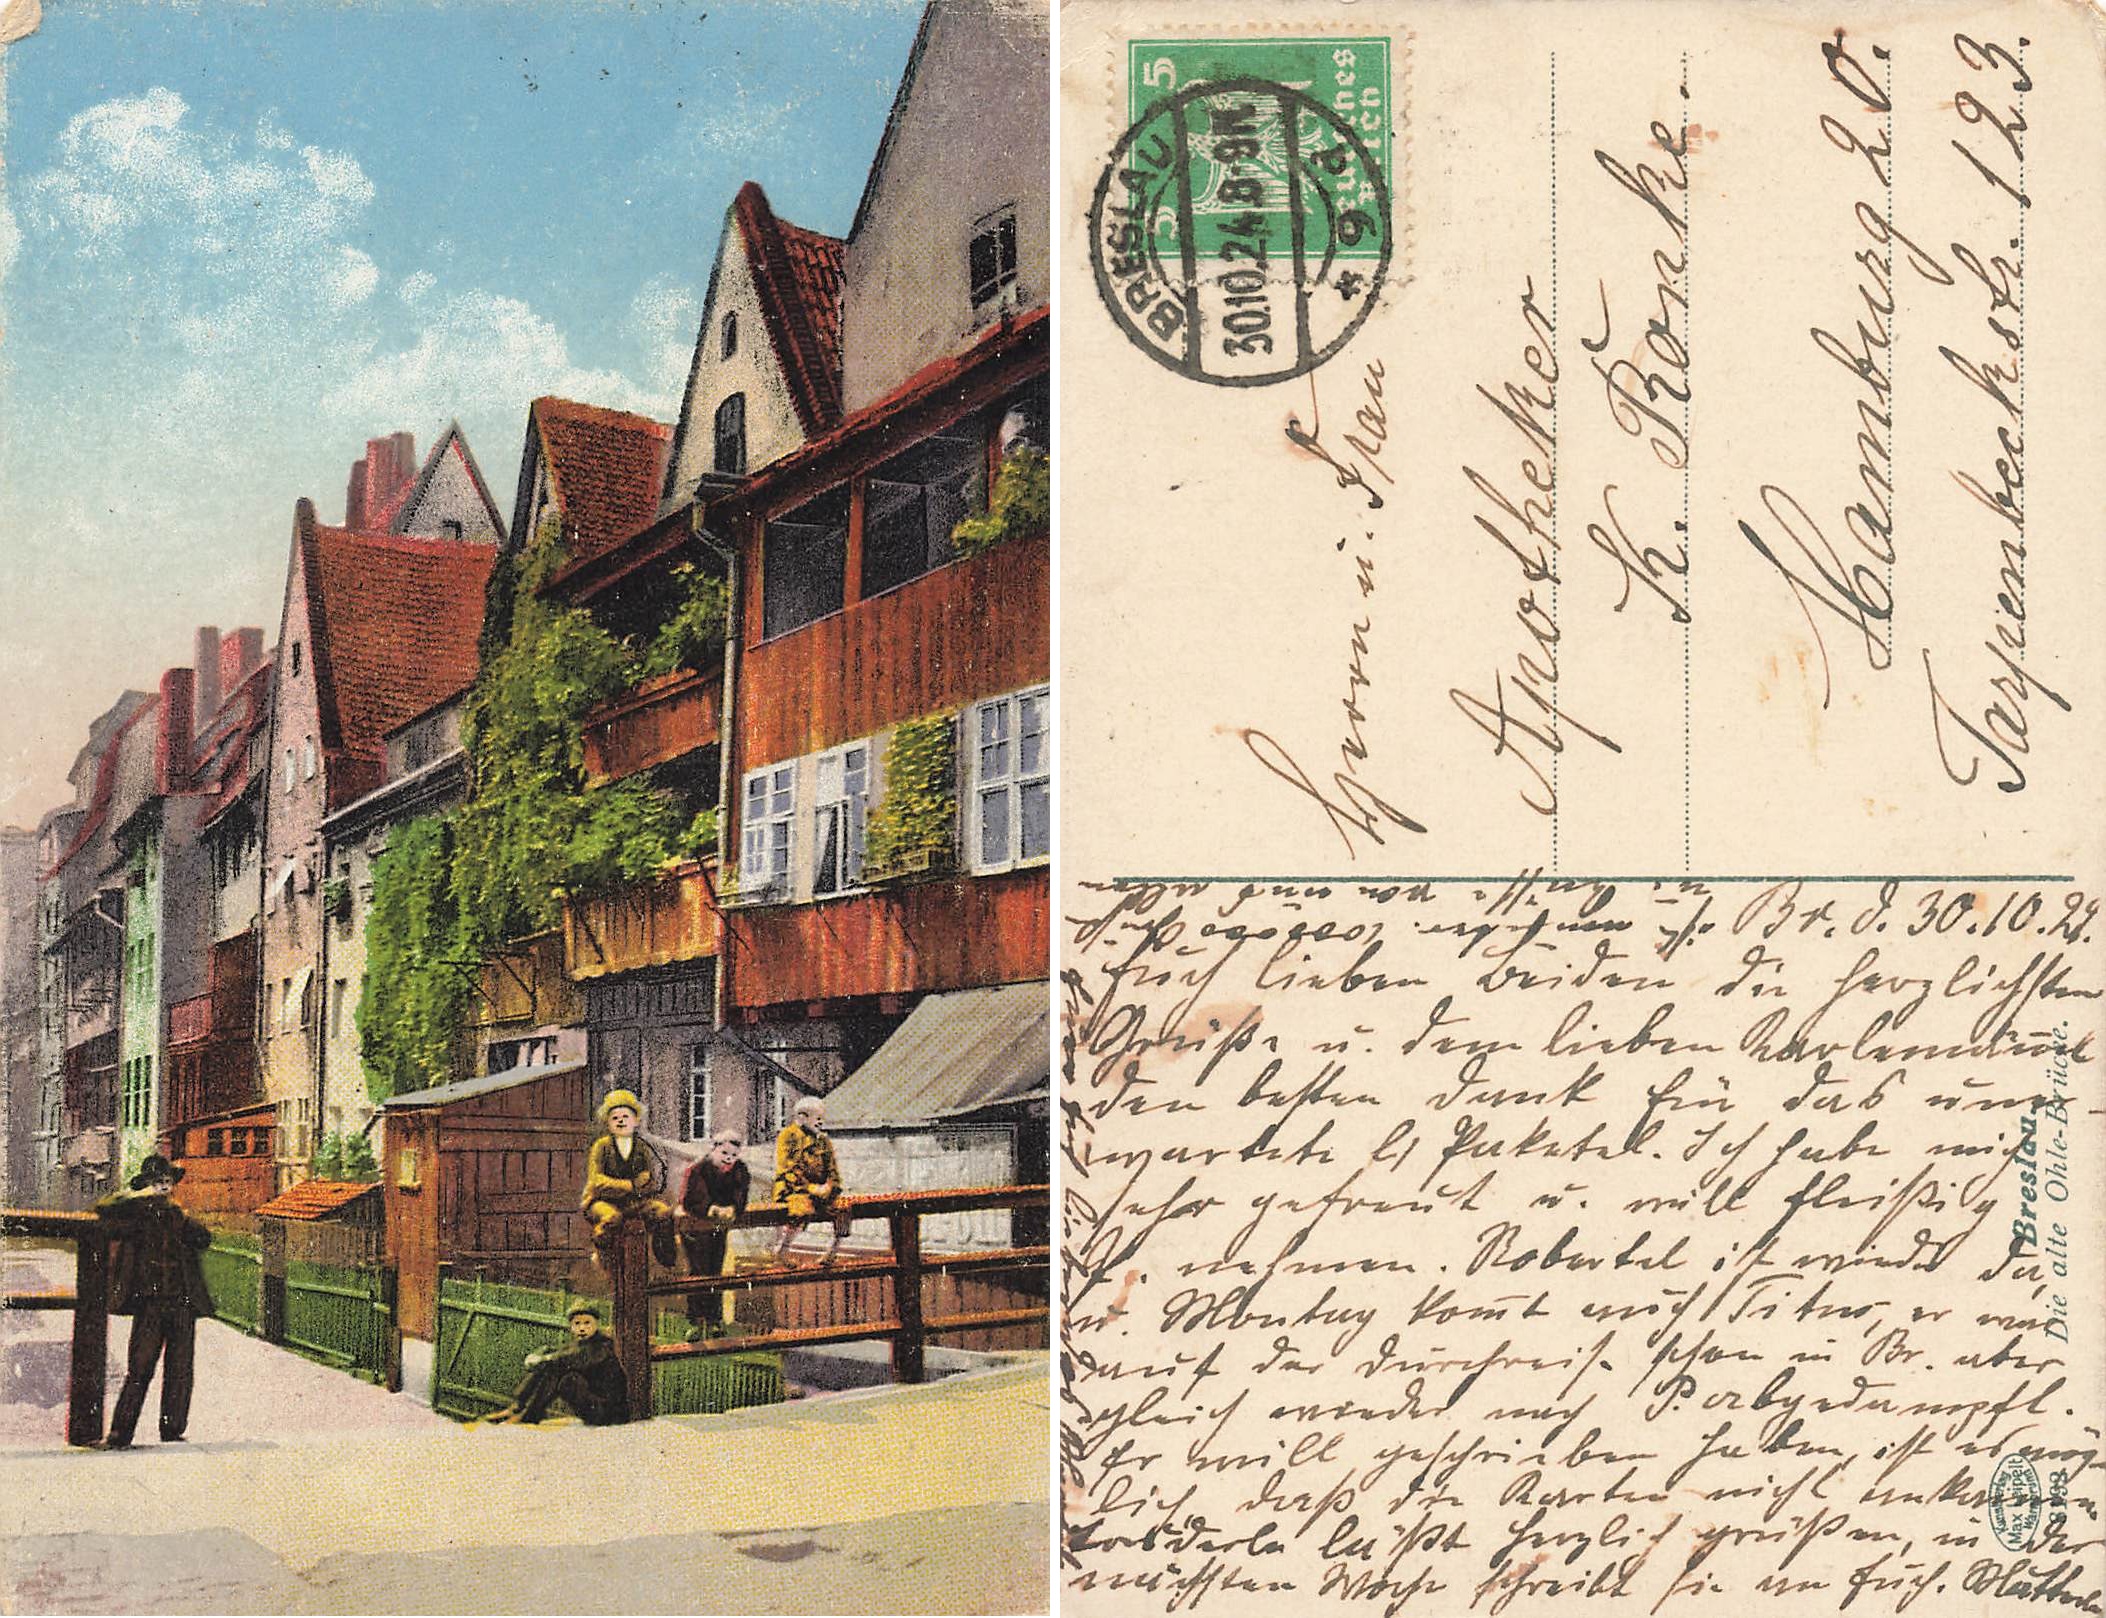 5 5
Deutsches
Reich
BRESLAU
30.10.24.8-9N.
* 9 d
Herrn u. Frau
Apotheker
K. Rönke.
Hamburg 20.
Tarpenbeckstr. 123.
Br. d. 30.10.24.
Euch lieben Beiden die herzlichsten
Grüße u. dem lieben Karlemännel
den besten Dank für das uner-
wartete Paketel. Ich habe mich
sehr gefreut u. will fleißig
nehmen. Robertel ist wieder da,
u. Montag kom̅t auch Titus, er war
auf der Durchreise schon in Br. aber
gleich wieder nach P. abgedampft.
Er will geschrieben haben, ist es mög-
lich, daß die Karten nicht ankamen
läßt herzlich grüßen, in der
nächsten Woche schreibt sie an Euch.
Breslau,
Die alte Ohle-Brücke.
Kunstverlag
Max Leipelt
Warmbrunn